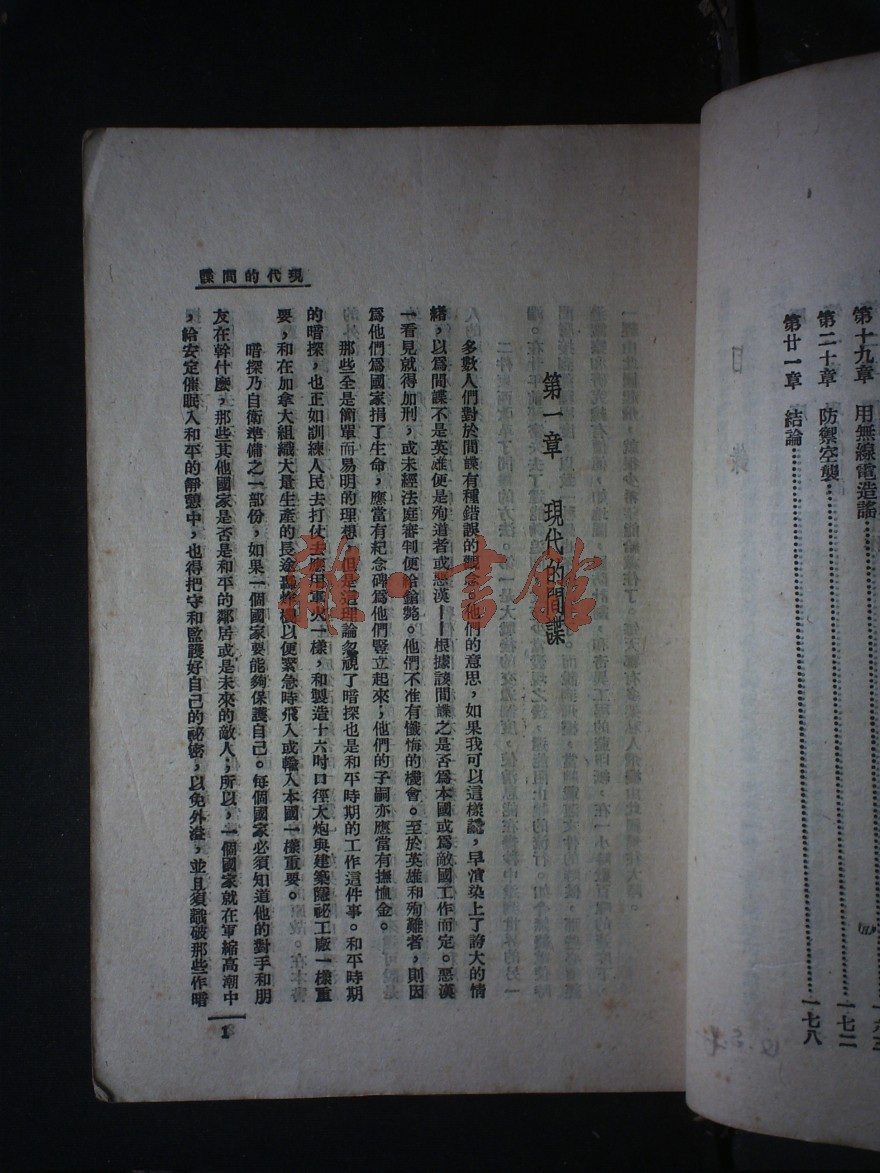 第十九章　用無線電造謠
第二十章　防禦空襲……一七二
第廿一章　結論……一七八
現代的間諜
第一章　現代的間諜
多數人們對於間諜有種錯誤的觀念，他們的意思，如果我可以這樣說，早漬染上了誇大的情
緒，以爲間諜不是英雄便是殉道者或惡漢——根據該間諜之是否爲本國或爲敵國工作而定。惡漢
一看見就得加刑，或未經法庭審判便給鎗斃。他們不准有懺悔的機會。至於英雄和殉難者，則因
爲他們爲國家捐了生命，應當有紀念碑爲他們豎立起來；他們的子嗣亦應當有撫恤金。
那些全是簡單而易明的理想，但是這理論忽視了暗探也是和平時期的工作這件事。和平時期
的暗探，也正如訓練人民去打仗去應用軍火一樣，和製造十六吋口徑大炮與建築隱祕工廠一樣重
要，和在加拿大組織大量生產的長途轟炸機以便緊急時飛入或輸入本國一樣重要。
暗探乃自衛準備之一部份，如果一個國家要能夠保護自己。每個國家必須知道他的對手和朋
友在幹什麼，那些其他國家是否是和平的鄰居或是未來的敵人；所以，一個國家就在軍縮高潮中
，給安定催眠入和平的靜憩中，也得把守和監護好自己的祕密，以免外洩，並且須識破那些作暗
1
龍·書館